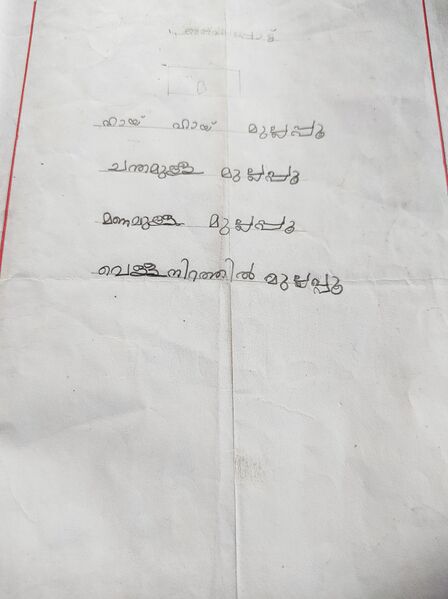 ഹായ് ഹായ് മുല്ലപ്പൂ
ചന്തമുള്ള മുല്ലപ്പൂ
മണമുള്ള മുല്ലപ്പൂ
വെള്ളനിറത്തിൽ മുല്ലപ്പൂ